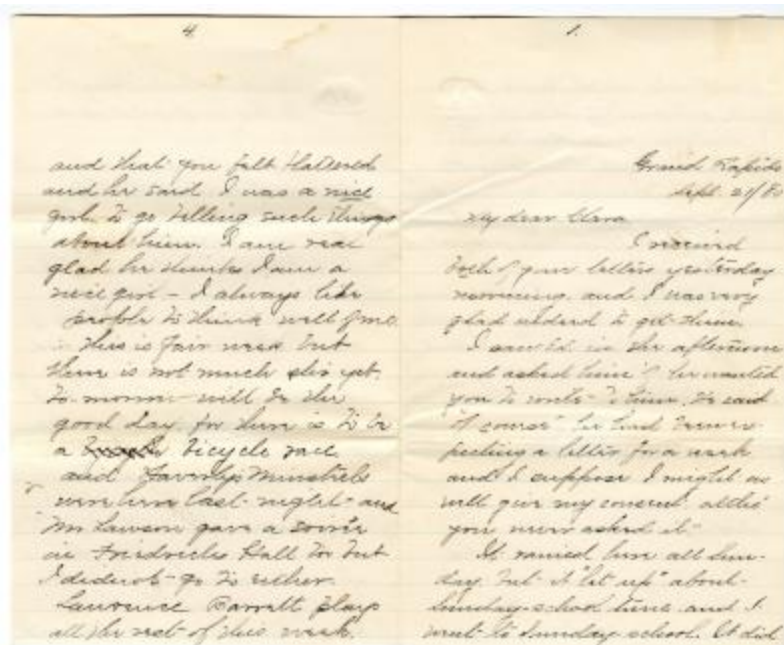 4.
and that you felt flattered
and he said I was a nice
girl to go telling such things
about him. I am real
glad he thinks I am a
nice girl - I always like
people to think well of me.
This is fair week but
there is not much stir yet.
To-morrow will be the
good day, for there is to be
a bicycle race
and Haverly's Minstrels
were here last night and
Mr Lawson gave a soirée
in Friedrichs Hall too but
I did not go to either.
Lawrence Barrett plays
all the rest of this week.
1.
Grand Rapids
Sept. 21/
My dear Clara
I received
both of your letters yesterday
morning and I was very
glad indeed to get them.
I saw in the afternoon
and asked him if he wanted
you to write to him. He said
"of course" he had been ex-
pecting a letter for a week
and I suppose I might as
well give my consent, altho'
you never asked it -
It rained here all Sun-
day but it "let up" about
Sunday-school time and I
went to Sunday school. It did